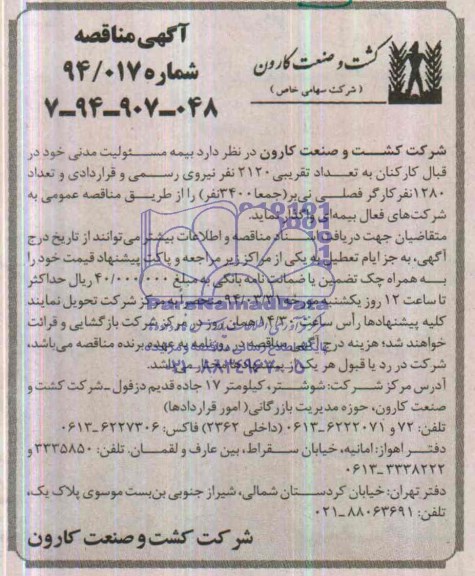 آگهی مناقصه
شماره ۹۴/۰۱۷
۷_۹۴_۹۰۷_۰۴۸
کشت و صنعت کارون
( شرکت سهامی خاص )
شرکت کشت و صنعت کارون در نظر دارد بیمه مسئولیت مدنی خود در
قبال کارکنان به تعداد تقریبی ۲۱۲۰ نفر نیروی رسمی و قراردادی و تعداد
۱۲۸۰نفر کارگر فصلی نی‌بر(جمعا۳۴۰۰نفر) را از طریق مناقصه عمومی به
شرکت‌های فعال بیمه‌ای واگذار نماید.
متقاضیان جهت دریافت اسناد مناقصه و اطلاعات بیشتر می‌توانند از تاریخ درج
آگهی، به جز ایام تعطیل به یکی از مراکز زیر مراجعه و پاکت پیشنهاد قیمت خود را
به همراه چک تضمین یا ضمانت نامه بانکی به مبلغ ۴۰/۰۰۰/۰۰۰ ریال حداکثر
تا ساعت ۱۲ روز یکشنبه مورخه ۹۴/۰۳/ منحصرا به مرکز شرکت تحویل نمایند
کلیه پیشنهادها رأس ساعت ۱۴/۳۰ همان روز در مرکز شرکت بازگشایی و قرائت
خواهند شد؛ هزینه درج آگهی مناقصه در روزنامه به عهده برنده مناقصه می‌باشد،
شرکت در رد یا قبول هر یک از پیشنهادها مختار می‌باشد.
آدرس مرکز شرکت: شوشتر، کیلومتر ۱۷ جاده قدیم دزفول _شرکت کشت و
صنعت کارون، حوزه مدیریت بازرگانی( امور قراردادها)
تلفن: ۷۲ و ۶۲۲۲۰۷۱_۰۶۱۳ (داخلی ۲۳۶۲) فاکس: ۶۲۲۷۳۰۶_۰۶۱۳
دفتر اهواز: امانیه، خیابان سقراط، بین عارف و لقمان. تلفن: ۳۳۳۵۸۵۰ و
۳۳۳۸۲۲۲_۰۶۱۳
دفتر تهران: خیابان کردستان شمالی، شیراز جنوبی بن‌بست موسوی پلاک یک،
تلفن: ۸۸۰۶۳۶۹۱_۰۲۱
شرکت کشت و صنعت کارون
ParsNamadData